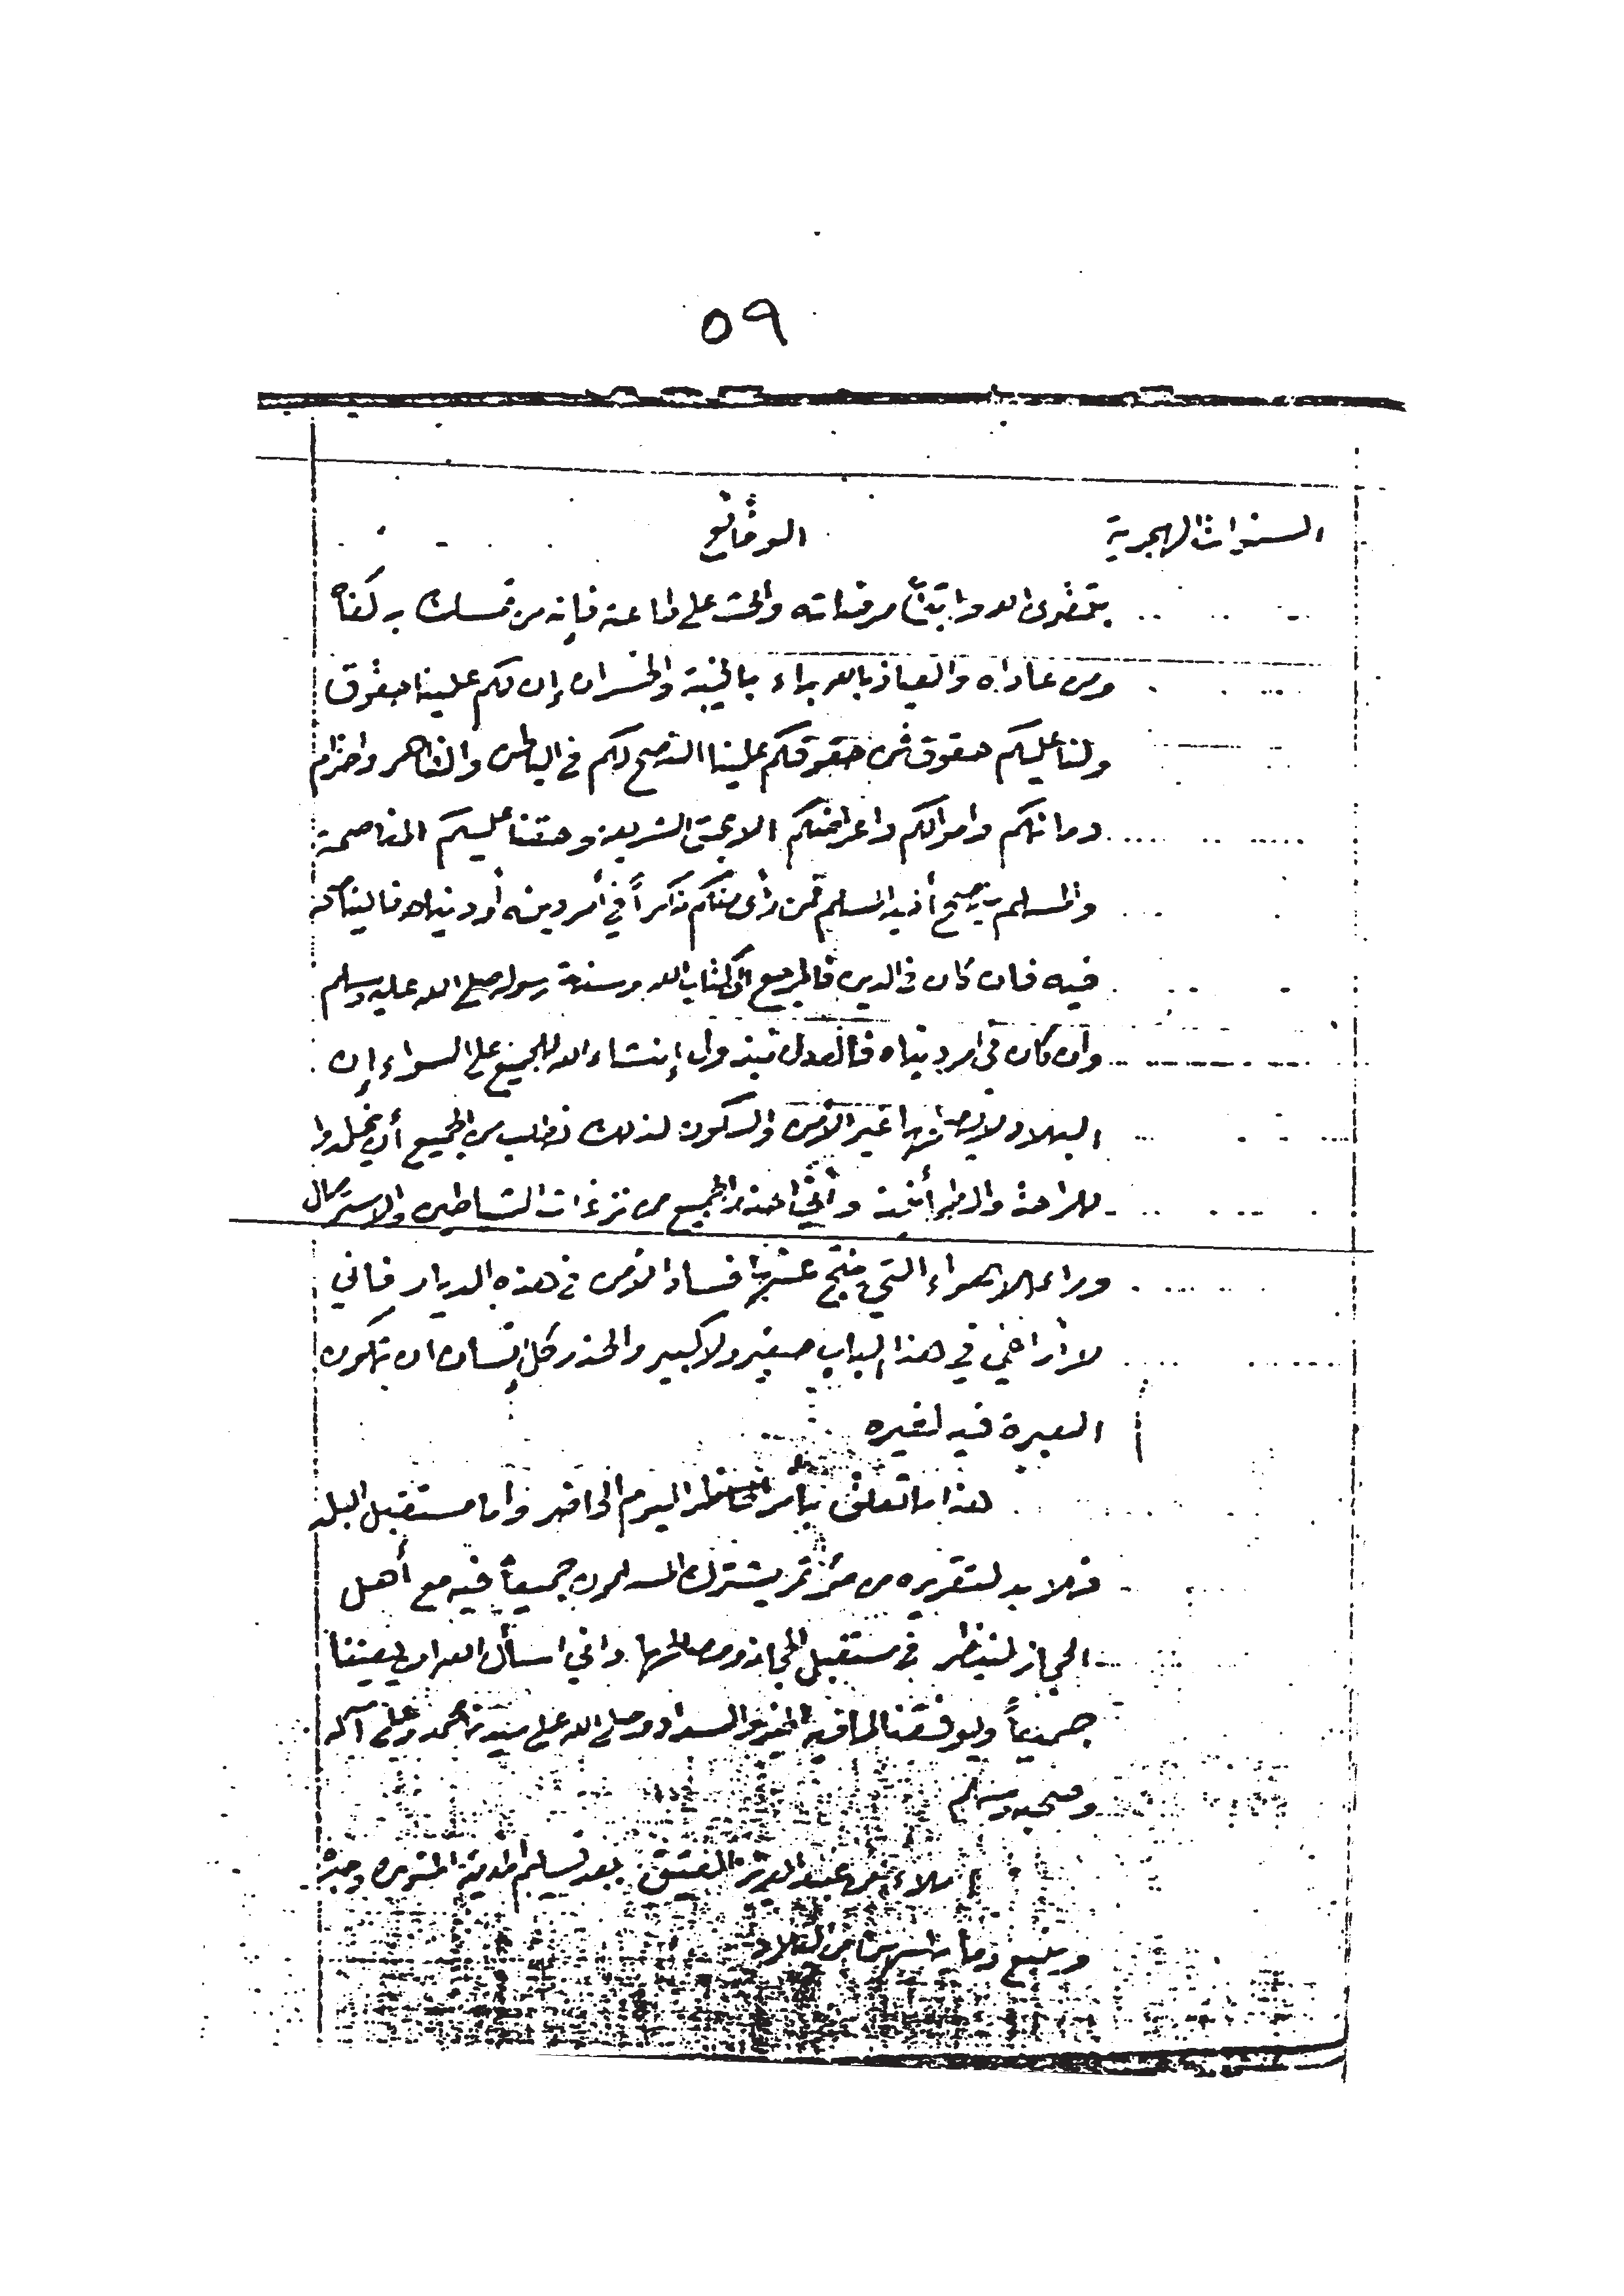 ٥٩
السنوات الهجرية الوقائع
بتقوى الله وابتغاء مرضاته والحث على طاعته فإنه من تمسك به كفاه
ومن عاداه والعياذ بالله باء بالخيبة والخسران إن لكم علينا حقوق
ولنا عليكم حقوق فمن حقوقكم علينا النصح لكم في الباطن والظاهر واحترام
دمائكم واموالكم واعراضكم الا بحق الشريعة وحقنا عليكم المناصحة
والمسلم ينصح أخيه المسلم فمن رأى منكم منكراً في أمر دينه أو دنياه فاليناكه
فيه فان كان في الدين فالمرجع الى كتاب الله وسنة رسوله صلى الله عليه وسلم
وان كان في امر دنياه فالعدل مبذول إنشاء الله للجميع على السواء إن
البلاد لا يصلحها غير الأمن والسكون لذلك نطلب من الجميع أن يخلدوا
للراحة والطمأنينة واني احذر الجميع من نزغات الشياطين والاسترسال
وراء الاهواء التي ينتج عنها افساد الأمن في هذه الديار فاني
لا أراعي في هذا الباب صغير ولا كبير والحذر كل إنسان ان تكون
العبرة فيه لغيره
هذا ما تعلق بأمر اليوم الحاضر وأما مستقبل البلد
فلا بد لتقريره من مؤتمر يشترك المسلمون جميعاً فيه مع أهل
الحجاز لينظر في مستقبل الحجاز ومصالحها واني اسأل الله ان يعيننا
جميعاً ويوفقنا لما فيه الخير والسداد وصلى الله على سيدنا محمد وعلى آله
وصحبه وسلم
املاء عن عبد العزيز العتيق بعد تسليم المدينة المنورة وجدة
وينبع وما من البلاد